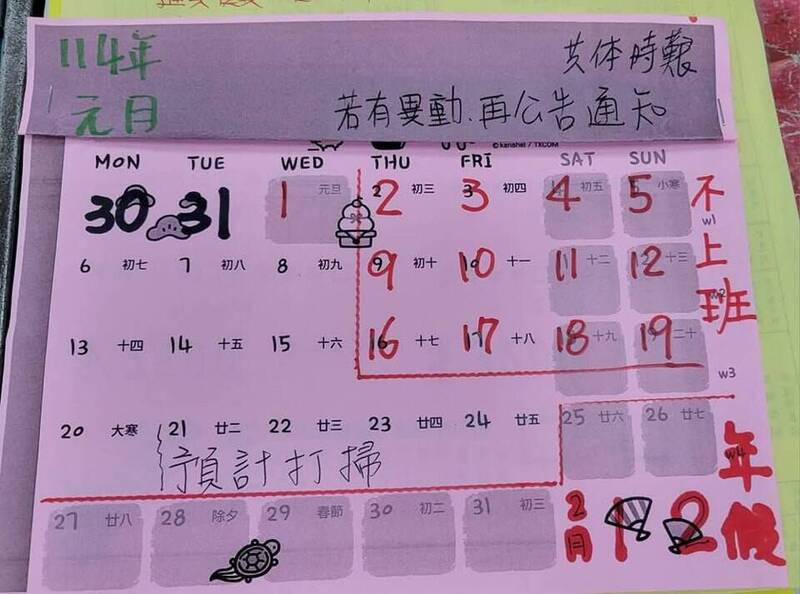 114年 共体時艱
元月 若有異動.再公告通知
©kanahei / TXCOM
MON TUE WED THU FRI SAT SUN
30 31 1 元旦 2 初三 3 初四 4 初五 5 小寒 不上班
w1
6 初七 7 初八 8 初九 9 初十 10 十一 11 十二 12 十三
w2
13 十四 14 十五 15 十六 16 十七 17 十八 18 十九 19 二十
w3
20 大寒 21 廿二 22 廿三 23 廿四 24 廿五 25 廿六 26 廿七
預計打掃
w4
年假
27 廿八 28 除夕 29 春節 30 初二 31 初三 2月 1 2